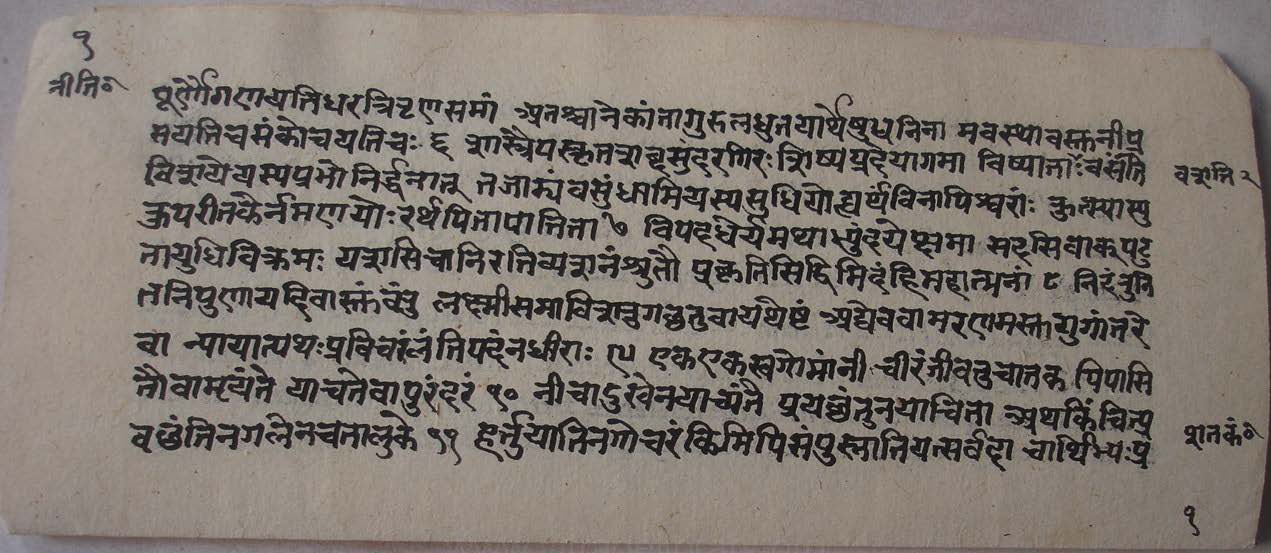 १
नीति॰
पूर्णो गणयति धरत्रितृणसमां अतश्चानेकांतागुरुलघुतयार्थेषुधनिना मवस्थावस्तूनीप्र
मयतिचमंकोचयतिचः ६ शास्त्रैपस्कृतशब्दसुंदरगिरः शिष्यप्रदेयागमा विष्याताःवसंति
विशयेयस्यप्रभोनिर्द्धनातू तजाम्यंवसुंधामियस्यसुधियोह्यर्थविनापिश्वराः कुत्स्यासु
कुपरीतकैर्नमणयोः रर्थपितापातिता ७ विपदधैर्यमथाभ्युदयेक्षमा सदसिवाकपटु
तायुधिविक्रमः यशसिचातिरतिव्यशनंश्रुतौ प्रकृतिसिद्दिमिदंहिमहात्मनां ८ निदंतुनि
तनिपुणायदिवास्तवंतु लक्ष्मीसमाविशतुगछतुवायथेष्टं अद्यैववामरणमस्तुयुगांतरे
वा न्यायात्पथःप्रविचलंतिपदंनधीराः ९५ एकएकखगोमांनी चीरंजीवतुचातक पिपासि
तौवामृयंते याचतेवापुरंदरं १० नीचादुखेनयाच्यंते प्रयछंतुनयाचितो अथकिंचित्प्र
वछंतिनगलेनचतालुके ११ हर्तुयातिनगोचरंकिमिपिसंपुस्नातियत्सर्वदा चार्थिभ्यःप्र
वशति २
शतकं॰
१